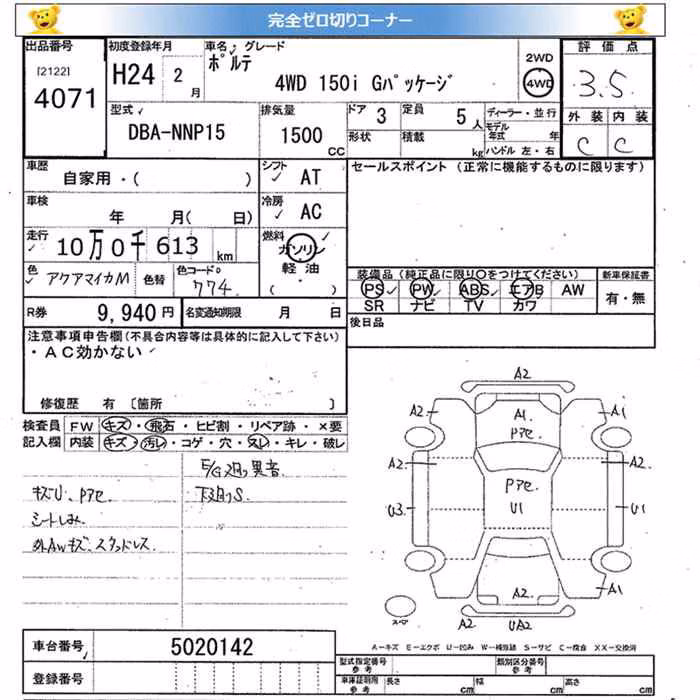 完全ゼロ切りコーナー
出品番号 初度登録年月 車名 グレード 2WD 評価点
[2122] 4071 H24 2月 ポルテ 4WD 150i Gパッケージ 4WD 3.5
型式 排気量 ドア 3 定員 5人 ディーラー・並行 外装 内装
DBA-NNP15 1500 CC 形状 積載 kg モデル年式 年 ハンドル 左・右 C C
車歴 シフト AT セールスポイント (正常に機能するものに限ります)
自家用・( )
車検 冷房 AC
年 月( 日)
走行 10万0千613 km 燃料 ガソリン
軽油
( )
色 アクアマイカM 色替 色コードNo 774
装備品 (純正品に限り○をつけてください) 新車保証書
PS PW ABS エアB AW 有・無
SR ナビ TV カワ
R券 9,940円 名変通知期限 月 日 後日品
注意事項申告欄(不具合内容等は具体的に記入して下さい)
・AC効かない
修復歴 有 〔箇所 〕
検査員 FW キズ・飛石・ヒビ割・リペア跡・×要
記入欄 内装 キズ・汚レ・コゲ・穴・スレ・キレ・破レ
E/G廻り異音
キズU、Pアセ 下廻りS
シートしみ
外AWキズ、スタッドレス
A2
A2 A1 A1
Pアセ
A2 A2
Pアセ
U3 U1 U1
A2 A1
スペア A2 UA2
A-キズ E-エクボ U-凹み W-補修跡 S-サビ C-腐食 XX-交換済
車台番号 5020142
登録番号
型式指定番号 参考 類別区分番号 参考
車庫証明用 参考 長さ cm 幅 cm 高さ cm